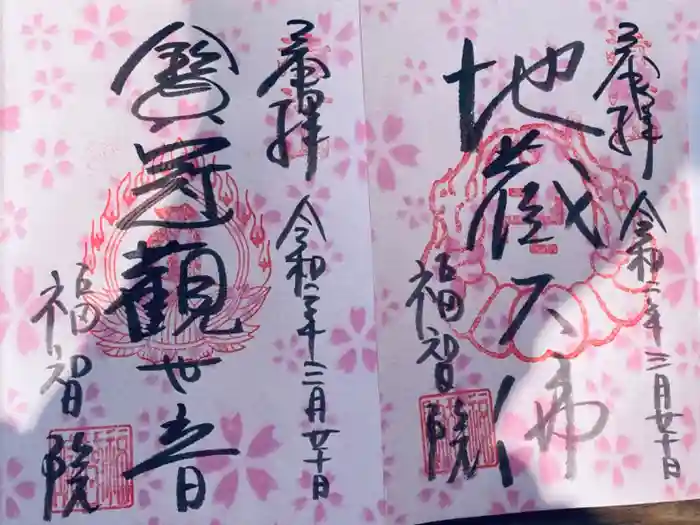 奉拝
令和二年三月廿十日
地蔵大佛
福智院
奉拝
令和二年三月廿十日
寶冠觀世音
福智院